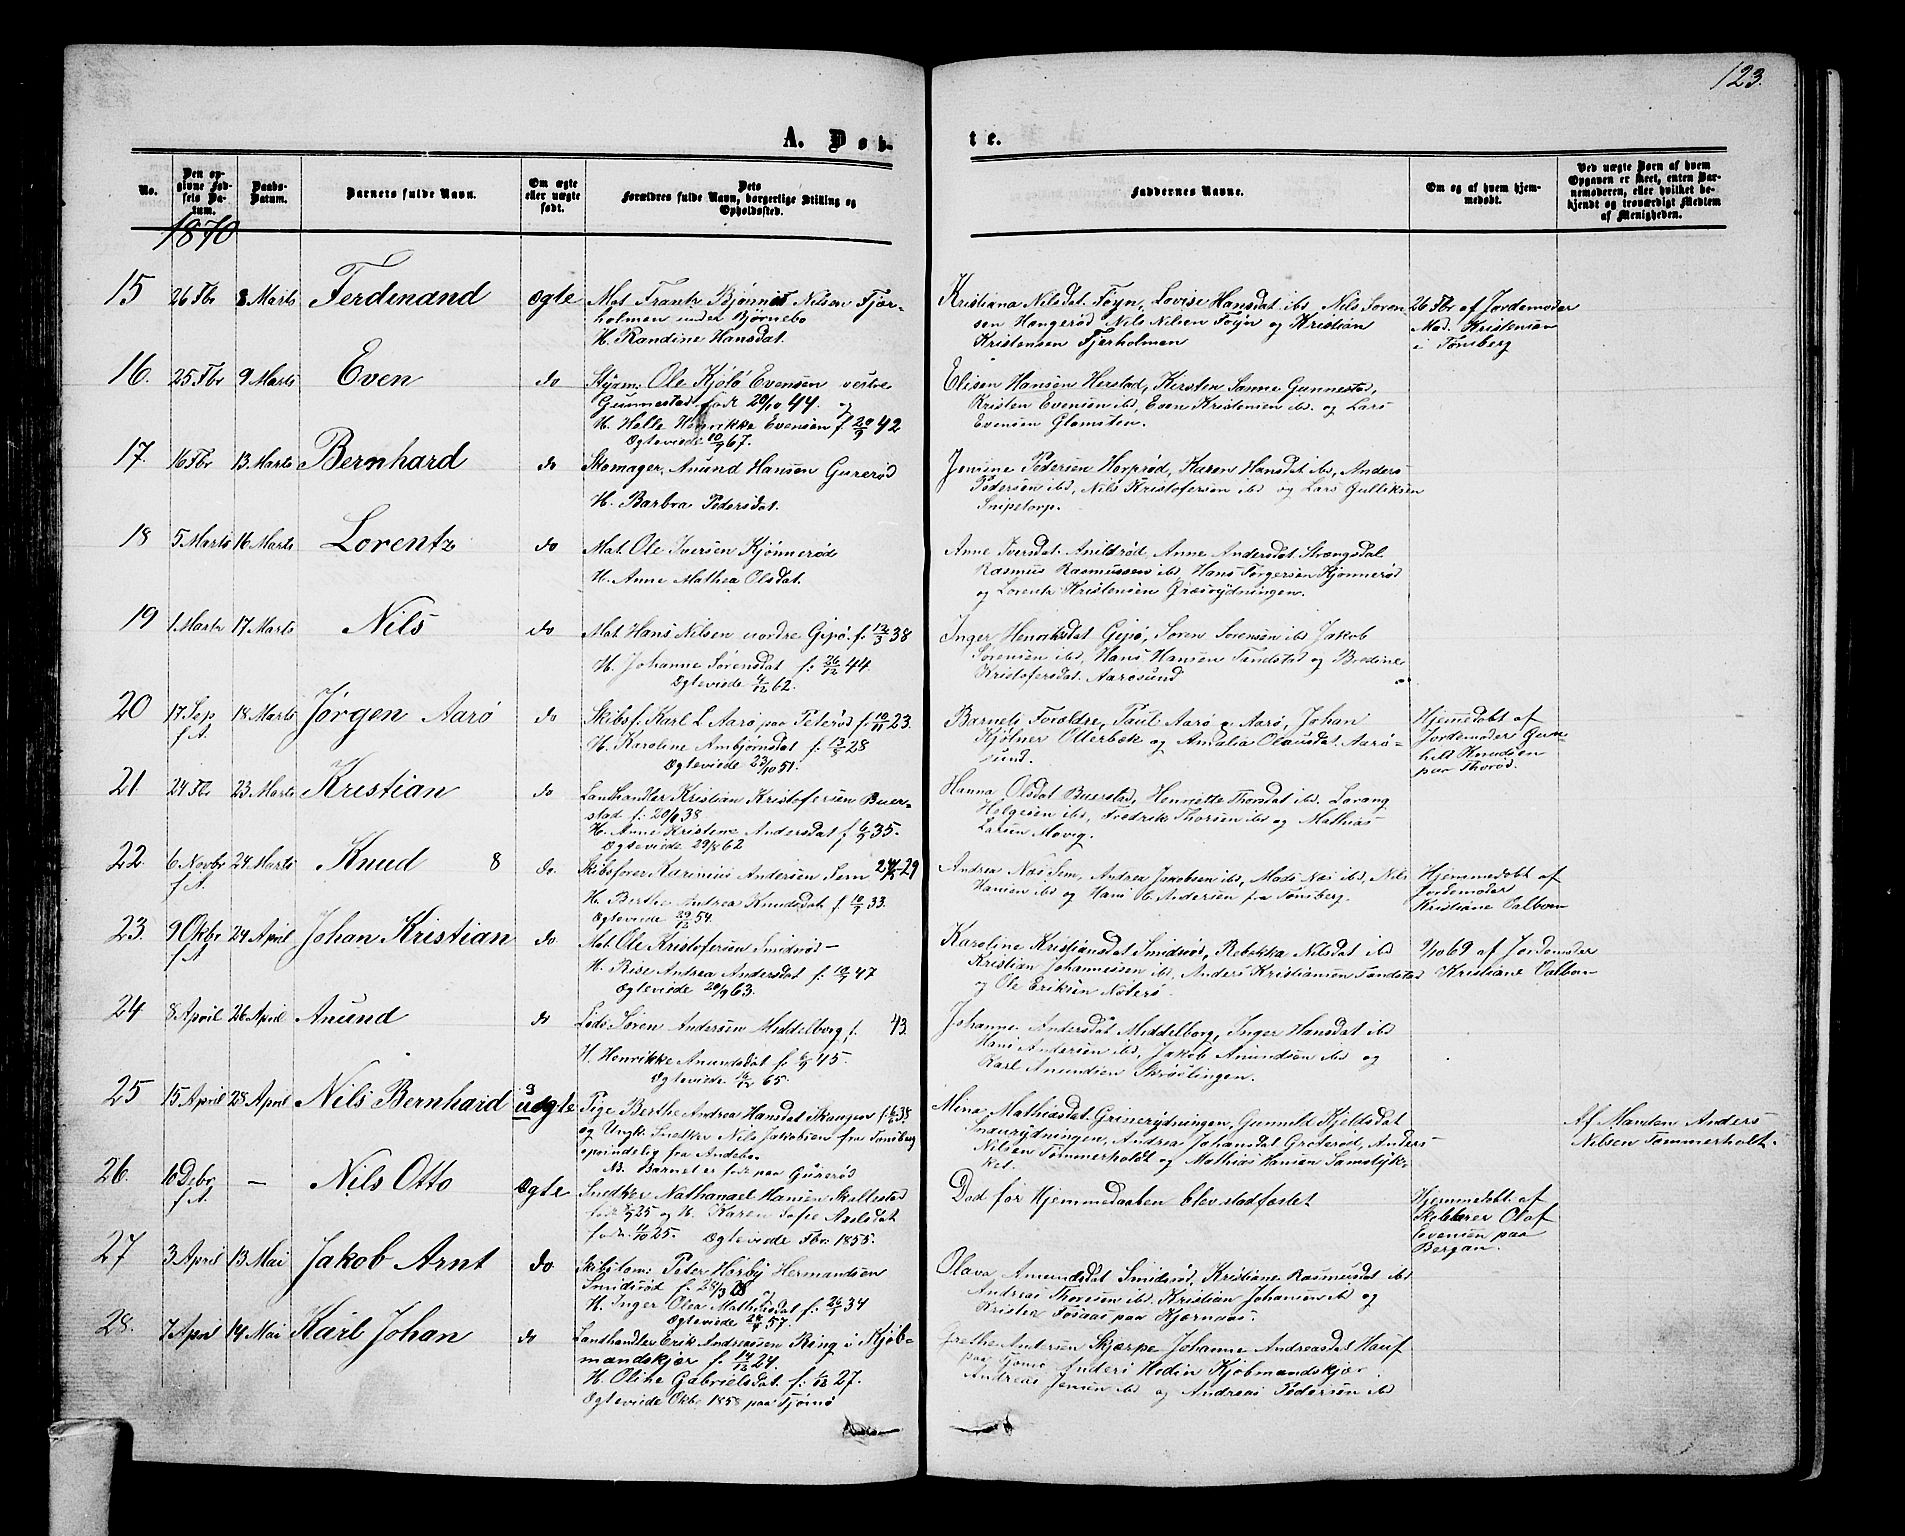 123.
A. Døb-
te.
No.
Den op-
givne Fød-
sels Da-
tum.
Daabs-
Datum.
Barnets fulde Navn.
Om ægte
eller uægte
født.
Dets
Forældres fulde Navn, borgerlige Stilling og
Opholdsted.
Faddernes Navne.
Om og af hvem hjem-
medøbt.
Ved uægte Børn af hvem
Opgaven er skeet, enten Bar-
nemoderen, eller hvilket be-
kjendt og troværdigt Medlem
af Menigheden.
1870
15 26 Fbr 8 Marts Ferdinand Ægte
Mat. Frantz Bjønnes Nilsen Fjær-
holmen under Bjørnebo
H. Randine Hansdat.
Kristiana Nilsdat. Føyn, Lovise Hansdat ibd Nils Soren-
sen Haugerød Nils Nilsen Føyn og Kristian
Kristensen Fjerholmen
26 Fbr af Jordemoder
Mad. Kristensen
i Tønsberg
16. 25 Fbr 9 Marts Even do
Styrm: Ole Kjølø Evensen vestre
Gunnestad født 20/10 44. og
H. Helle Henrikke Evensen f. 20/9 42
Ægteviede 10/9 67.
Elisen Hansen Herstad, Kirsten Sanne Gunnestad,
Kristen Evensen ibd, Even Kristensen ibd. og Lars
Evensen Glomsten.
17. 16 Fbr 13 Marts Bernhard do
Skomager, Anund Hansen Gurerød
H. Barbra Pedersdat.
Jensine Pedersen Horprød, Karen Hansdat ibd, Anders
Pedersen ibd, Nils Kristofersen ibd og Lars Gulliksen
Snipetorp.
18 5 Marts 16 Marts Lorentz do
Mat. Ole Iversen Kjønnerød
H. Anne Mathea Olsdat.
Anne Iversdat. Anildrød, Anne Andersdat Strængsdal
Rasmus Rasmussen ibd, Hans Torgersen Kjønnerød
og Lorentz Kristensen Græsrydningen.
19 1 Marts 17 Marts Nils do
Mat. Hans Nilsen nordre Gipø. f. 12/3 38
H. Johanne Sørensdat f: 26/12 44.
Ægteviede 4/12 62.
Inger Henriksdat Gipø, Søren Sørensen ibd Jakob
Sørensen ibd, Hans Hansen Tandstad og Bredine
Kristofersdat. Aarøsund
20 17 Sep 18 Marts Jørgen Aarø do
f. A.
Skibsf. Karl L Aarø paa Peterød f. 10/11 23.
H. Karoline Ambjørnsdat f: 13/5 28
Ægteviede 23/10 51.
Barnets Forældre, Paul Aarø o Aarø, Johan
Kjølner Otterbæk og Amalia Olausdat. Aarø-
sund.
Hjemedøbt af
Jordemoder Gun-
hild Knudsen
paa Thorød.
21 24 Fbr 23 Marts Kristian do
Landhandler Kristian Kristofersen Buer-
stad f: 20/1 38
H. Anne Kristine Andersdat f. 6/2 35.
Ægteviede 29/8 62
Hanna Olsdat Buerstad, Henriette Thorsdat ibd. Lorang
Helgesen ibd, Fredrik Thorsen ibd og Mathias
Larsen Movig.
22. 6 Novbr 24 Marts Knud 8 do.
f. A.
Skibsfører Karinius Andersen Sem 29
H. Berthe Andrea Knudsdat f 10/7 33.
Ægteviede 29/12 54.
Andrea Næs Sem, Andrea Jakobsen ibd, Mads Næs ibd, Nils
Hansen ibd og Hans C. Andersen fra Tønsberg.
Hjemmedøbt af
Jordemoder
Kristiane Valbom
23. 9 Okbr 24 April Johan Kristian do
f. A
Mat. Ole Kristofersen Smidsrød
H. Rise Andrea Andersdat f: 10/7 47
Ægteviede 20/9 63.
Karoline Kristiansdat Smidsrød, Rebekka Nilsdat ibd
Kristian Johannesen ibd, Anders Kristiansen Tandstad
og Ole Eriksen Nøterø.
9/10 69 af Jordemoder
Kristiane Valbom
24 8 April 26 April Anund do
Lods Søren Andersen Middelborg f. 43.
H. Henrikke Anundsdat f: 6/9 45.
Ægteviede 65.
Johanne Andersdat Middelborg, Inger Hansdat ibd
Hans Andersen ibd, Jakob Anundsen ibd og
Karl Anundsen Skrøslingen.
25 15 April 28 April Nils Bernhard 3 uægte
Pige Berthe Andrea Hansdat Skaugen f. 38.
og Ungk. Snedker Nils Jakobsen fra Tønsberg
oprindelig fra Andebo.
NB. Barnet er født paa Gurerød
Mina Mathiasdat Grinerydningen, Gunnild Kjeldsdat
Snaurydningen, Andrea Johansdat Grøterød, Anders
Nilsen Tømmerholdt og Mathias Hansen Samstyk-
ket.
Af Manden Anders
Nilsen Tømmerholdt.
26. 10 Debr — Nils Otto Ægte
f. A.
Snedker Nathanael Hansen Skallestad
født 25 og H. Karen Sofie Axelsdat
født. 11/10 25. Ægteviede Fbr: 1855.
Død før Hjemmedaaben blev stadfæstet
Hjemmedøbt af
Skolelærer Olaf
Evensen paa
Bergan.
27 3 April 13 Mai Jakob Arnt do
Skibstøm: Peter Høsby Hermandsen
Smidsrød f. 28/3 28
H. Inger Olea Mathisdat f: 26/1 34
Ægteviede 57.
Olava Amundsdat Smidsrød, Kristiane Rasmusdat ibd
Andreas Thoresen ibd. Kristian Johansen ibd og
Krister Fosaas paa Kjærnaas.
28. 7 April 14 Mai Karl Johan do
Landhandler Erik Andreasen Ring i Kjøb-
mandskjær f. 14/12 24.
H. Oline Gabrielsdat. f: 6/12 27.
Ægteviede Okbr 1858 paa Tjømø
Grethe Andersen Skjærpe Johanne Andreasdat Hauf
paa Tjømø Anders Hedin Kjøbmandskjær
Andreas Jensen ibd og Andreas Pedersen ibd